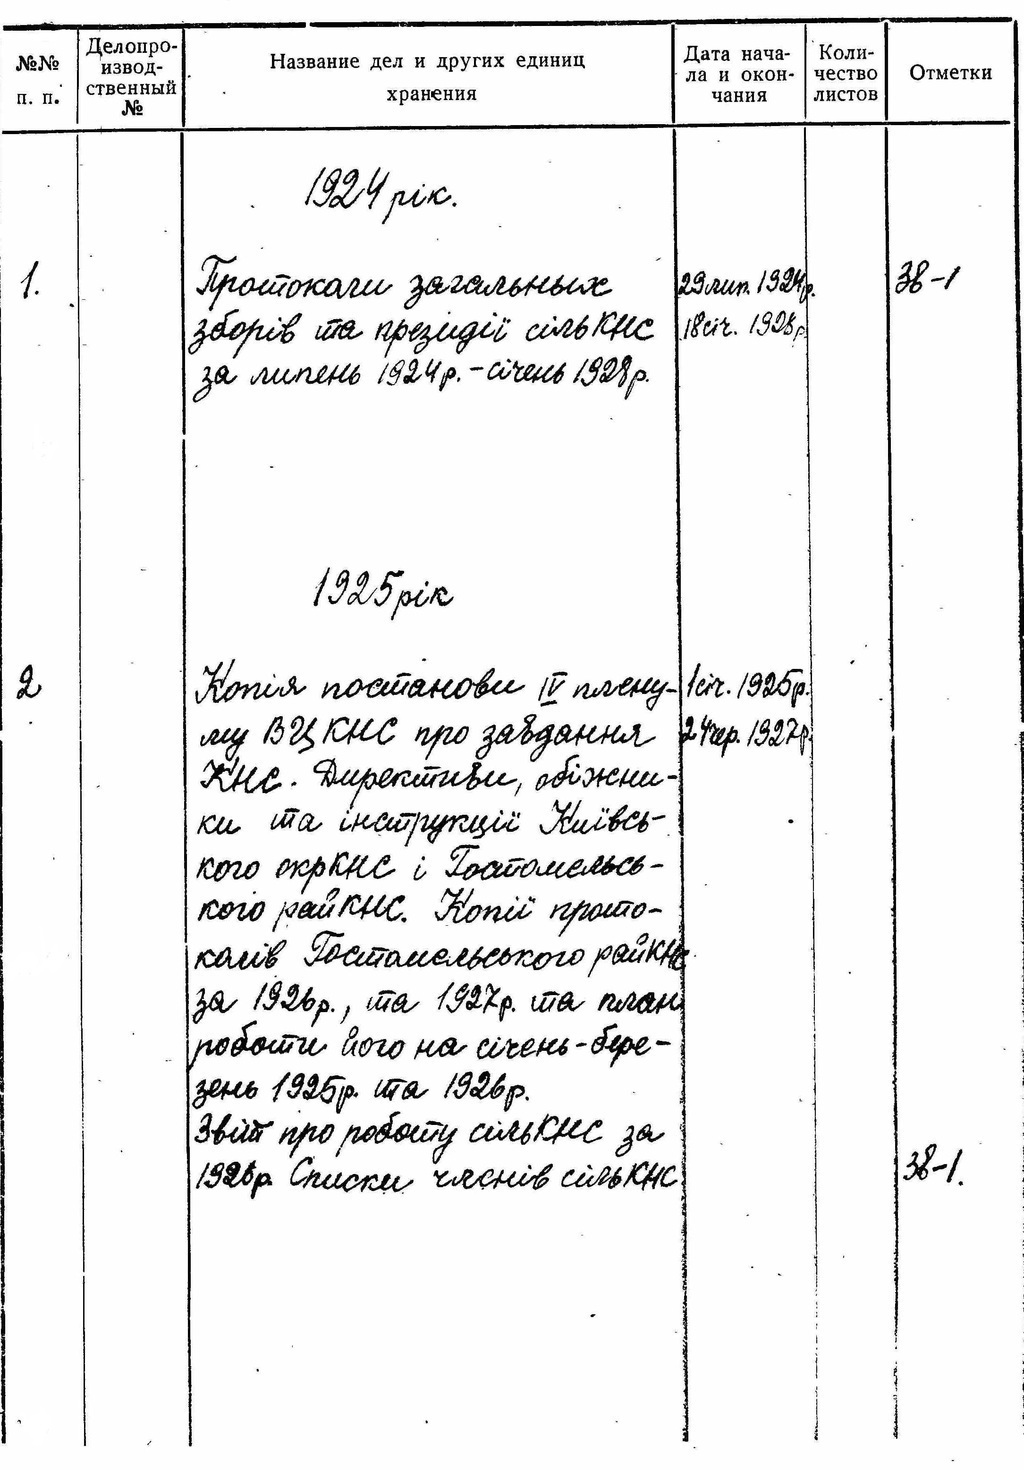 №№ п. п.
Делопро-
извод-
ственный
№
Название дел и других единиц
хранения
Дата нача-
ла и окон-
чания
Коли-
чество
листов
Отметки
1924 рік.
1. Протокали загальных 29 лип. 1924р. 38-1
зборів та президії сільКНС 18 січ. 1928р.
за липень 1924р. - січень 1928р.
1925 рік
2 Копія постанови IV плену- 1 січ. 1925р.
му ВЦКНС про завдання 24 чер. 1927р.
КНС. Директиви, обіжни-
ки та інструкції Київсь-
кого окрКНС і Гостомельсь-
кого райКНС. Копії прото-
колів Гостомельського райКНС
за 1926р., та 1927р. та план
роботи його на січень-бере-
зень 1925р. та 1926р.
Звіт про роботу сільКНС за
1926р. Списки членів сільКНС 38-1.